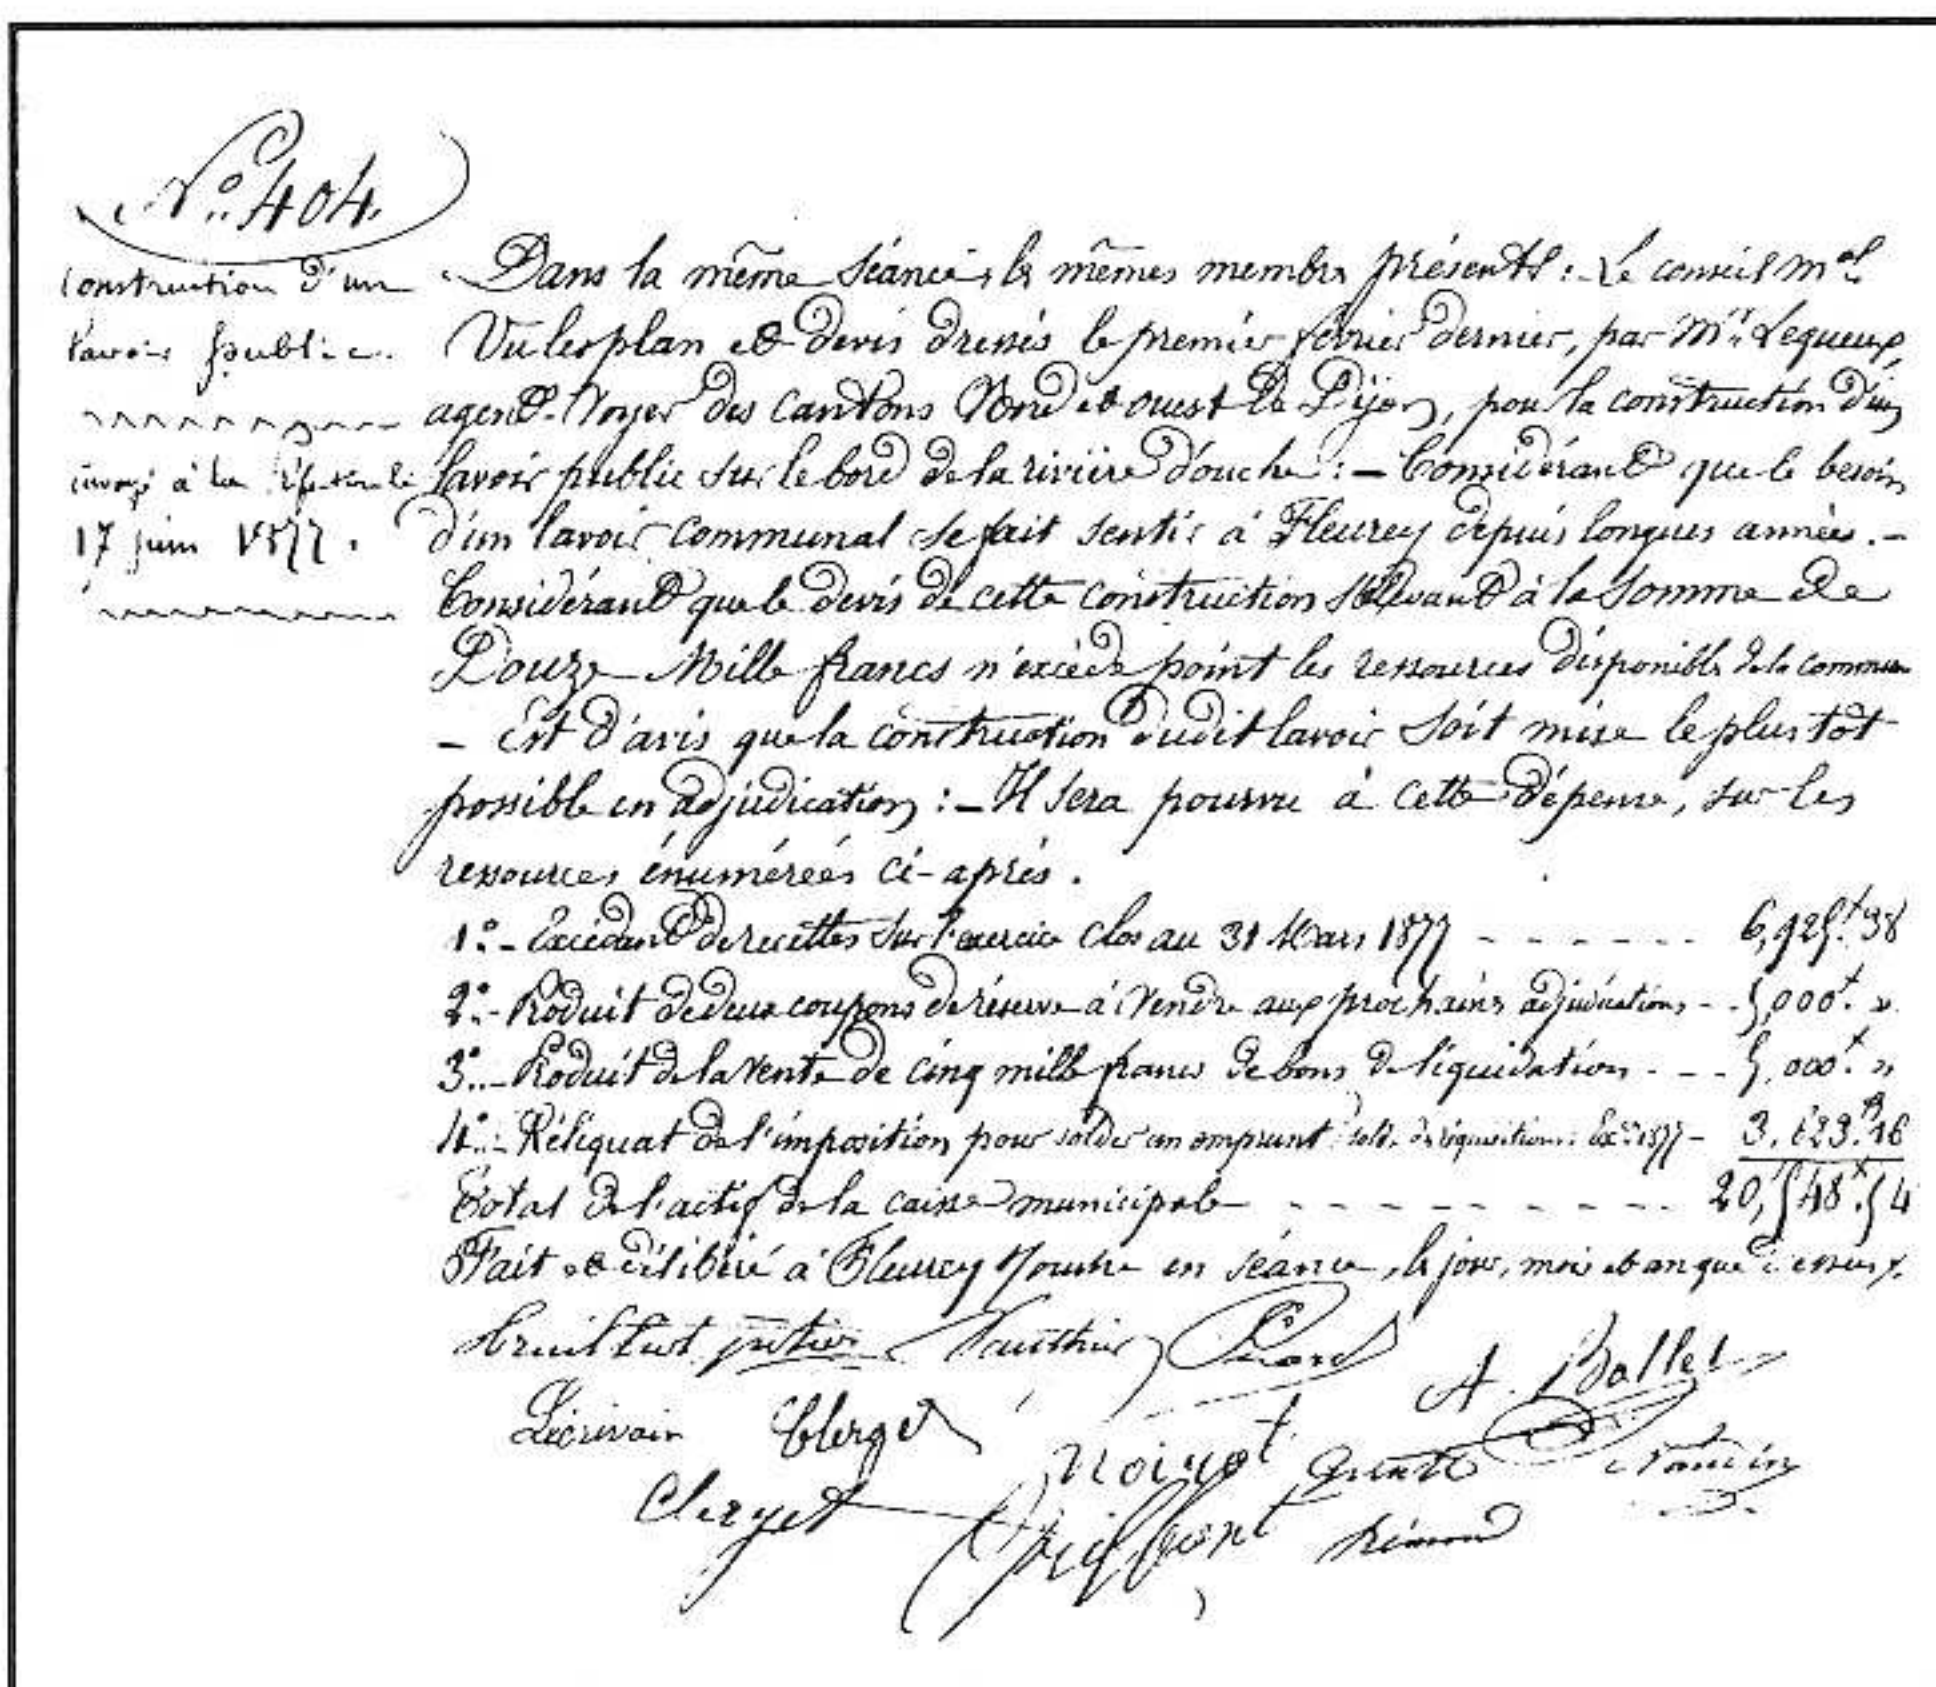 N° 404.
Construction d'un
lavoir public.
envoyé à la Préfecture le
17 juin 1877.
Dans la même séance, les mêmes membres présents : - Le conseil mal
Vu les plan et devis dressés le premier février dernier, par Mr Lequeux,
agent-Voyer des cantons Nord et ouest de Dijon, pour la construction d'un
lavoir public sur le bord de la rivière d'ouche : - Considérant que le besoin
d'un lavoir communal se fait sentir à Fleurey depuis longues années. -
Considérant que le devis de cette construction s'élevant à la somme de
Douze Mille francs n'excède point les ressources disponibles de la commune
- Est d'avis que la construction dudit lavoir soit mise le plus tôt
possible en adjudication : - Il sera pourvu à cette dépense, sur les
ressources énumérées ci-après.
1° - Excédant de recettes sur l'exercice clos au 31 Mars 1877 - - - - - - 6,925f.38
2° - Produit de deux coupons de réserve à vendre aux prochaines adjudications - - 5,000f. »
3° - Produit de la vente de cinq mille francs de bons de liquidation - - - 5,000f. »
4° - Réliquat de l'imposition pour solder un emprunt solde de réquisitions Exce 1877 - 3,623f.16
Total de l'actif de la caisse municipale - - - - - - - - - 20,548f.54
Fait et délibéré à Fleurey s/ouche en séance, les jour, mois et an que dessus.
Vauthier
A. Ballet
Lécrivain Clerget
Noirot
Clerget
Rémond